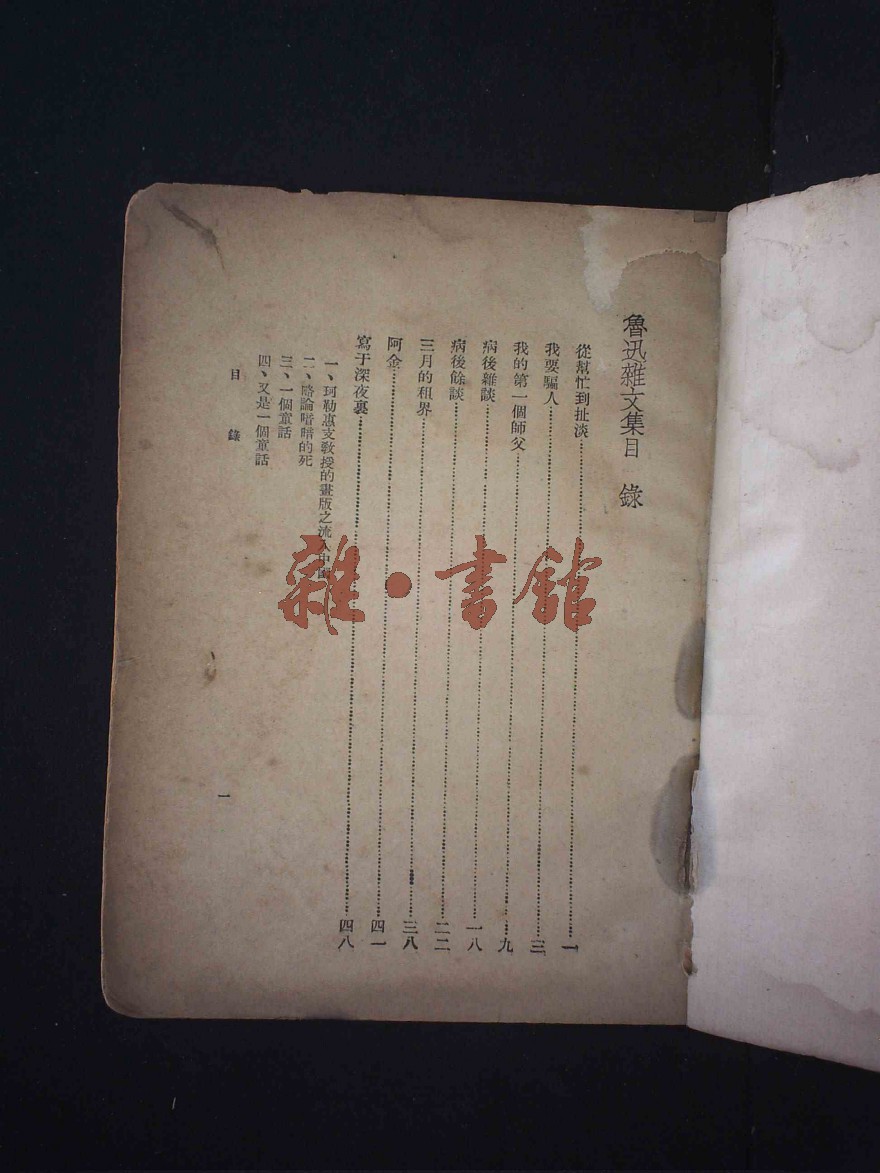 魯迅雜文集目 錄
從幫忙到扯淡……一
我要騙人……三
我的第一個師父……九
病後雜談……一八
病後餘談……二二
三月的租界……三八
阿金……四一
寫于深夜裏……四八
一、珂勒惠支教授的畫版之流入中國
二、略論暗暗的死
三、一個童話
四、又是一個童話
目 錄
一
雜·書館